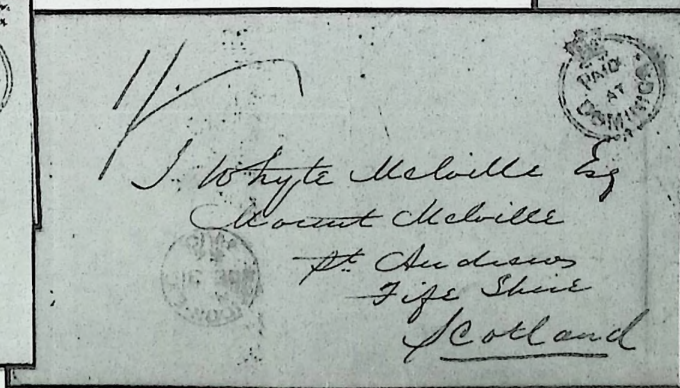 PAID
AT
DOMINICA
1/
J Whyte Melville Esq
Mount Melville
St. Andrews
Fife Shire
Scotland